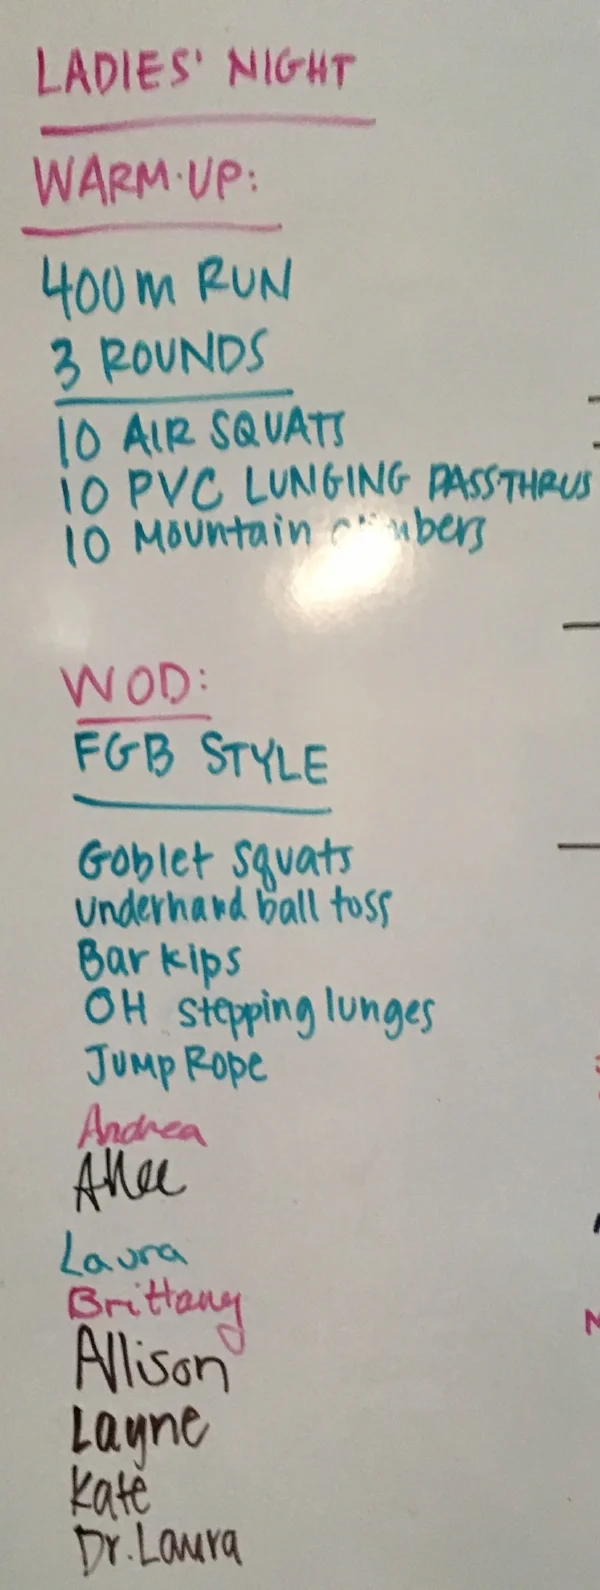 LADIES' NIGHT
WARM-UP:
400m RUN
3 ROUNDS
10 AIR SQUATS
10 PVC LUNGING PASS-THRUS
10 Mountain climbers
WOD:
FGB STYLE
Goblet squats
underhand ball toss
Bar kips
OH stepping lunges
Jump Rope
Andrea
Laura
Brittany
Allison
Layne
Kate
Dr. Laura